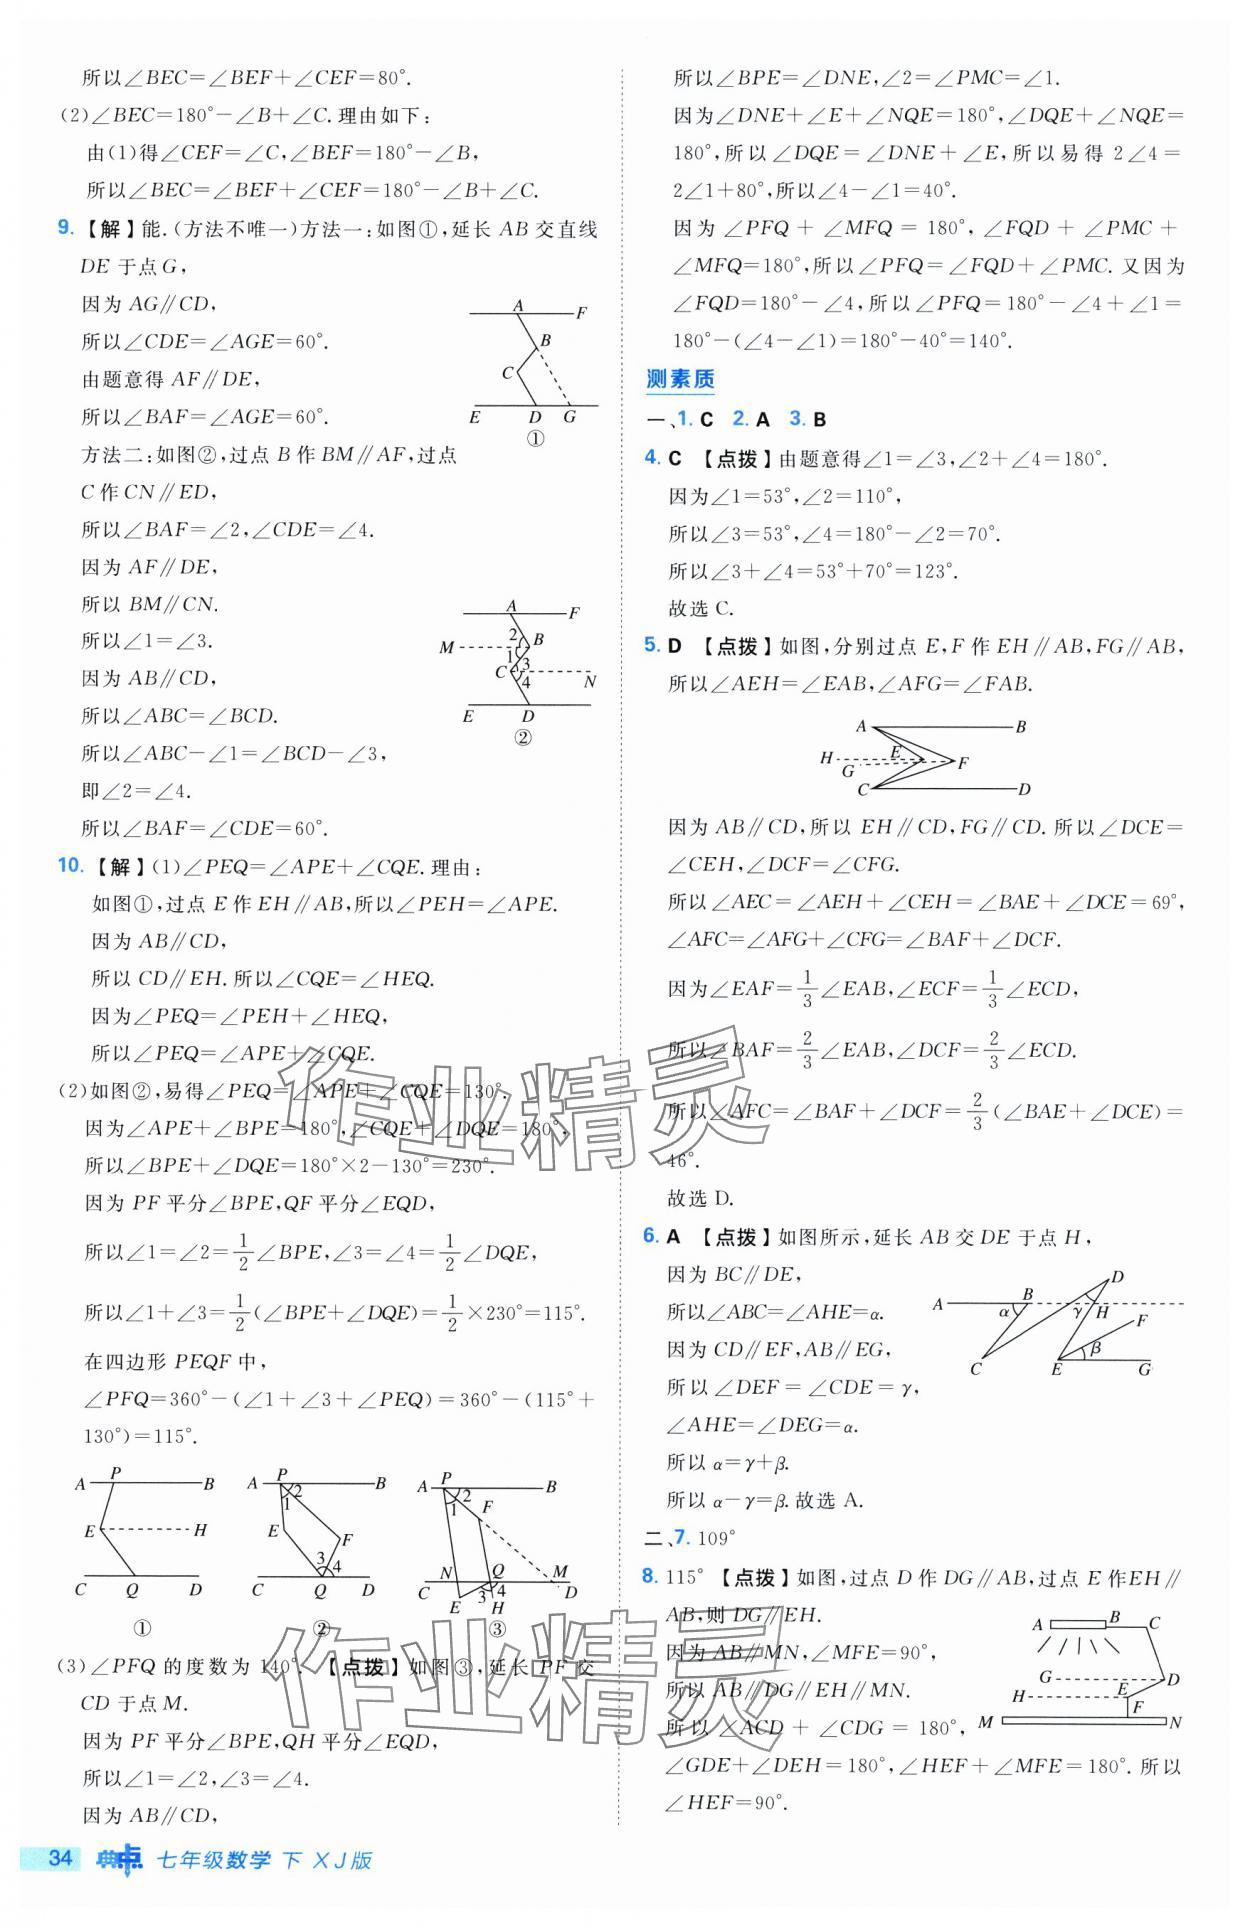 所以∠BEC=∠BEF+∠CEF=80°.
(2)∠BEC=180°-∠B+∠C.理由如下:
由(1)得∠CEF=∠C,∠BEF=180°-∠B,
所以∠BEC=∠BEF+∠CEF=180°-∠B+∠C.
9.【解】能.(方法不唯一)方法一:如图①,延长AB交直线
DE于点G,
因为AG∥CD,
所以∠CDE=∠AGE=60°.
由题意得AF∥DE,
所以∠BAF=∠AGE=60°.
A F
B
C
E D G
①
方法二:如图②,过点B作BM∥AF,过点
C作CN∥ED,
所以∠BAF=∠2,∠CDE=∠4.
因为AF∥DE,
所以BM∥CN.
所以∠1=∠3.
因为AB∥CD,
所以∠ABC=∠BCD.
所以∠ABC-∠1=∠BCD-∠3,
即∠2=∠4.
所以∠BAF=∠CDE=60°.
A F
M 2 B
1
C 3
4 N
E D
②
10.【解】(1)∠PEQ=∠APE+∠CQE.理由:
如图①,过点E作EH∥AB,所以∠PEH=∠APE.
因为AB∥CD,
所以CD∥EH.所以∠CQE=∠HEQ.
因为∠PEQ=∠PEH+∠HEQ,
所以∠PEQ=∠APE+∠CQE.
(2)如图②,易得∠PEQ=∠APE+∠CQE=130°.
因为∠APE+∠BPE=180°,∠CQE+∠DQE=180°,
所以∠BPE+∠DQE=180°×2-130°=230°.
因为PF平分∠BPE,QF平分∠EQD,
所以∠1=∠2=1/2∠BPE,∠3=∠4=1/2∠DQE,
所以∠1+∠3=1/2(∠BPE+∠DQE)=1/2×230°=115°.
在四边形PEQF中,
∠PFQ=360°-(∠1+∠3+∠PEQ)=360°-(115°+
130°)=115°.
A P B
E H
C Q D
①
A P B
1 2
E F
3 4
C Q D
②
A P B
1 2
F
C N Q M D
E 3 4 H
③
(3)∠PFQ的度数为140°. 【点拨】如图③,延长PF交
CD于点M.
因为PF平分∠BPE,QH平分∠EQD,
所以∠1=∠2,∠3=∠4.
因为AB∥CD,
34 典点 七年级数学 下 XJ版
所以∠BPE=∠DNE,∠2=∠PMC=∠1.
因为∠DNE+∠E+∠NQE=180°,∠DQE+∠NQE=
180°,所以∠DQE=∠DNE+∠E,所以易得2∠4=
2∠1+80°,所以∠4-∠1=40°.
因为∠PFQ+∠MFQ=180°,∠FQD+∠PMC+
∠MFQ=180°,所以∠PFQ=∠FQD+∠PMC.又因为
∠FQD=180°-∠4,所以∠PFQ=180°-∠4+∠1=
180°-(∠4-∠1)=180°-40°=140°.
测素质
一、1. C 2. A 3. B
4. C 【点拨】由题意得∠1=∠3,∠2+∠4=180°.
因为∠1=53°,∠2=110°,
所以∠3=53°,∠4=180°-∠2=70°.
所以∠3+∠4=53°+70°=123°.
故选C.
5. D 【点拨】如图,分别过点E,F作EH∥AB,FG∥AB,
所以∠AEH=∠EAB,∠AFG=∠FAB.
A B
H E
G F
C D
因为AB∥CD,所以EH∥CD,FG∥CD.所以∠DCE=
∠CEH,∠DCF=∠CFG.
所以∠AEC=∠AEH+∠CEH=∠BAE+∠DCE=69°,
∠AFC=∠AFG+∠CFG=∠BAF+∠DCF.
因为∠EAF=1/3∠EAB,∠ECF=1/3∠ECD,
所以∠BAF=2/3∠EAB,∠DCF=2/3∠ECD.
所以∠AFC=∠BAF+∠DCF=2/3(∠BAE+∠DCE)=
46°.
故选D.
6. A 【点拨】如图所示,延长AB交DE于点H,
因为BC∥DE,
所以∠ABC=∠AHE=α.
因为CD∥EF,AB∥EG,
所以∠DEF=∠CDE=γ,
∠AHE=∠DEG=α.
所以α=γ+β.
所以α-γ=β.故选A.
D
A B H
α γ F
C E β G
二、7. 109°
8. 115° 【点拨】如图,过点D作DG∥AB,过点E作EH∥
AB,则DG∥EH.
因为AB∥MN,∠MFE=90°,
所以AB∥DG∥EH∥MN.
所以∠ACD+∠CDG=180°,
∠GDE+∠DEH=180°,∠HEF+∠MFE=180°.所以
∠HEF=90°.
A B C
G D
H E
F
M N
作业精灵
作业精灵